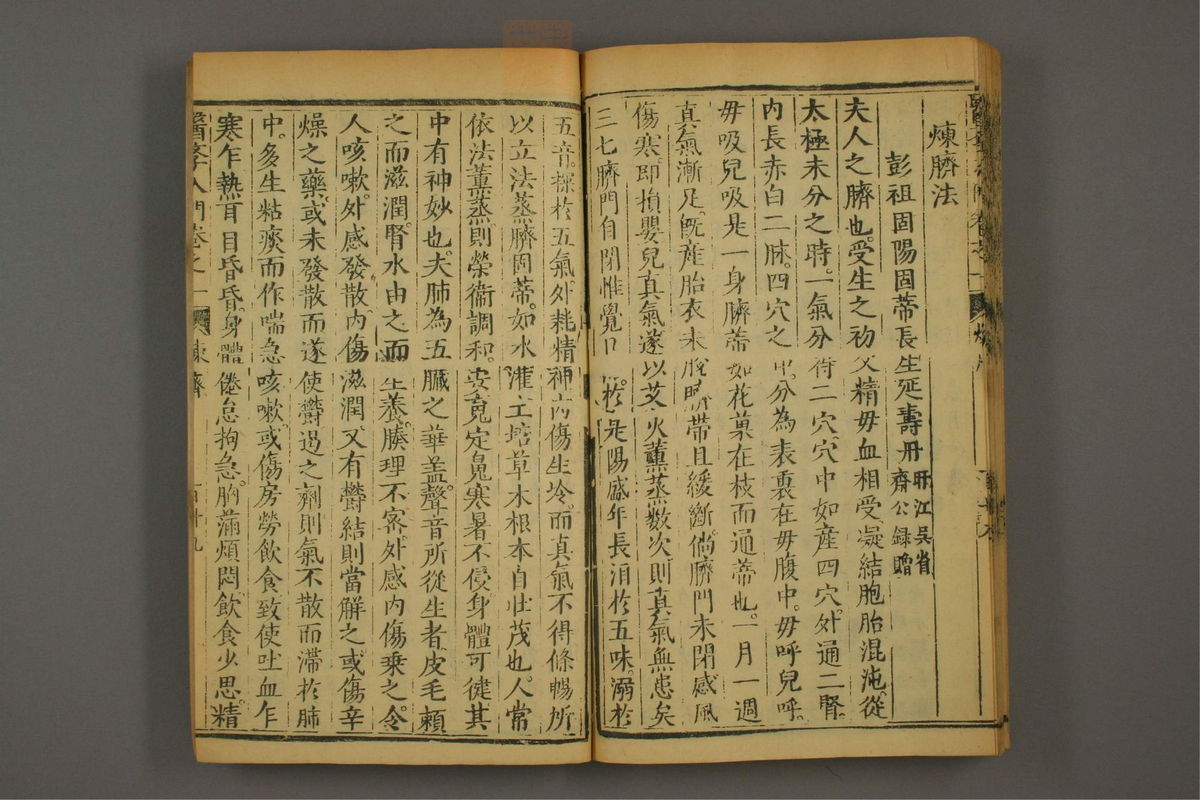 煉臍法
彭祖固陽固蒂長生延壽丹
盱江吳省
齋公録贈
夫人之臍也。受生之初父精母血相受凝結胞胎混沌。從
太極未分之時。一氣分得二穴。穴中如産四穴。外通二腎。
内長赤白二脉。四穴之中。分為表裏在母腹中。母呼兒呼。
母吸兒吸是一身臍蒂如花菓在枝而通蒂也。一月一週
真氣漸足。既産胎衣未脫臍帶且緩斷。倘臍門未閉感風
傷寒即損嬰兒真氣遂以艾火薰蒸数次則真氣無患矣
三七臍門自閉惟覺口於。是陽盛年長泪於五味。溺於
五音。探於五氣外耗精神内傷生冷。而真氣不得條暢所
以立法蒸臍固蒂。如水灌土培草木根本自壯茂也。人常
依法薰蒸則榮衞調和。安竟定鬼寒暑不侵身體可健其
中有神妙也。夫肺為五臟之華盖聲音所從生者皮毛賴
之而滋潤。腎水由之而生養。腠理不宻外感内傷乗之。令
人咳嗽。外感發散内傷滋潤又有欝結則當解之或傷辛
燥之藥。或未發散而遂使欝遏之劑則氣不散而滯於肺
中。多生粘痰而作喘急咳嗽。或傷房勞飲食致使吐血乍
寒乍熱耳目昏昏。身體倦怠拘急。胸滿煩悶飲食少思精
醫學入門卷之一
煉臍
百十九